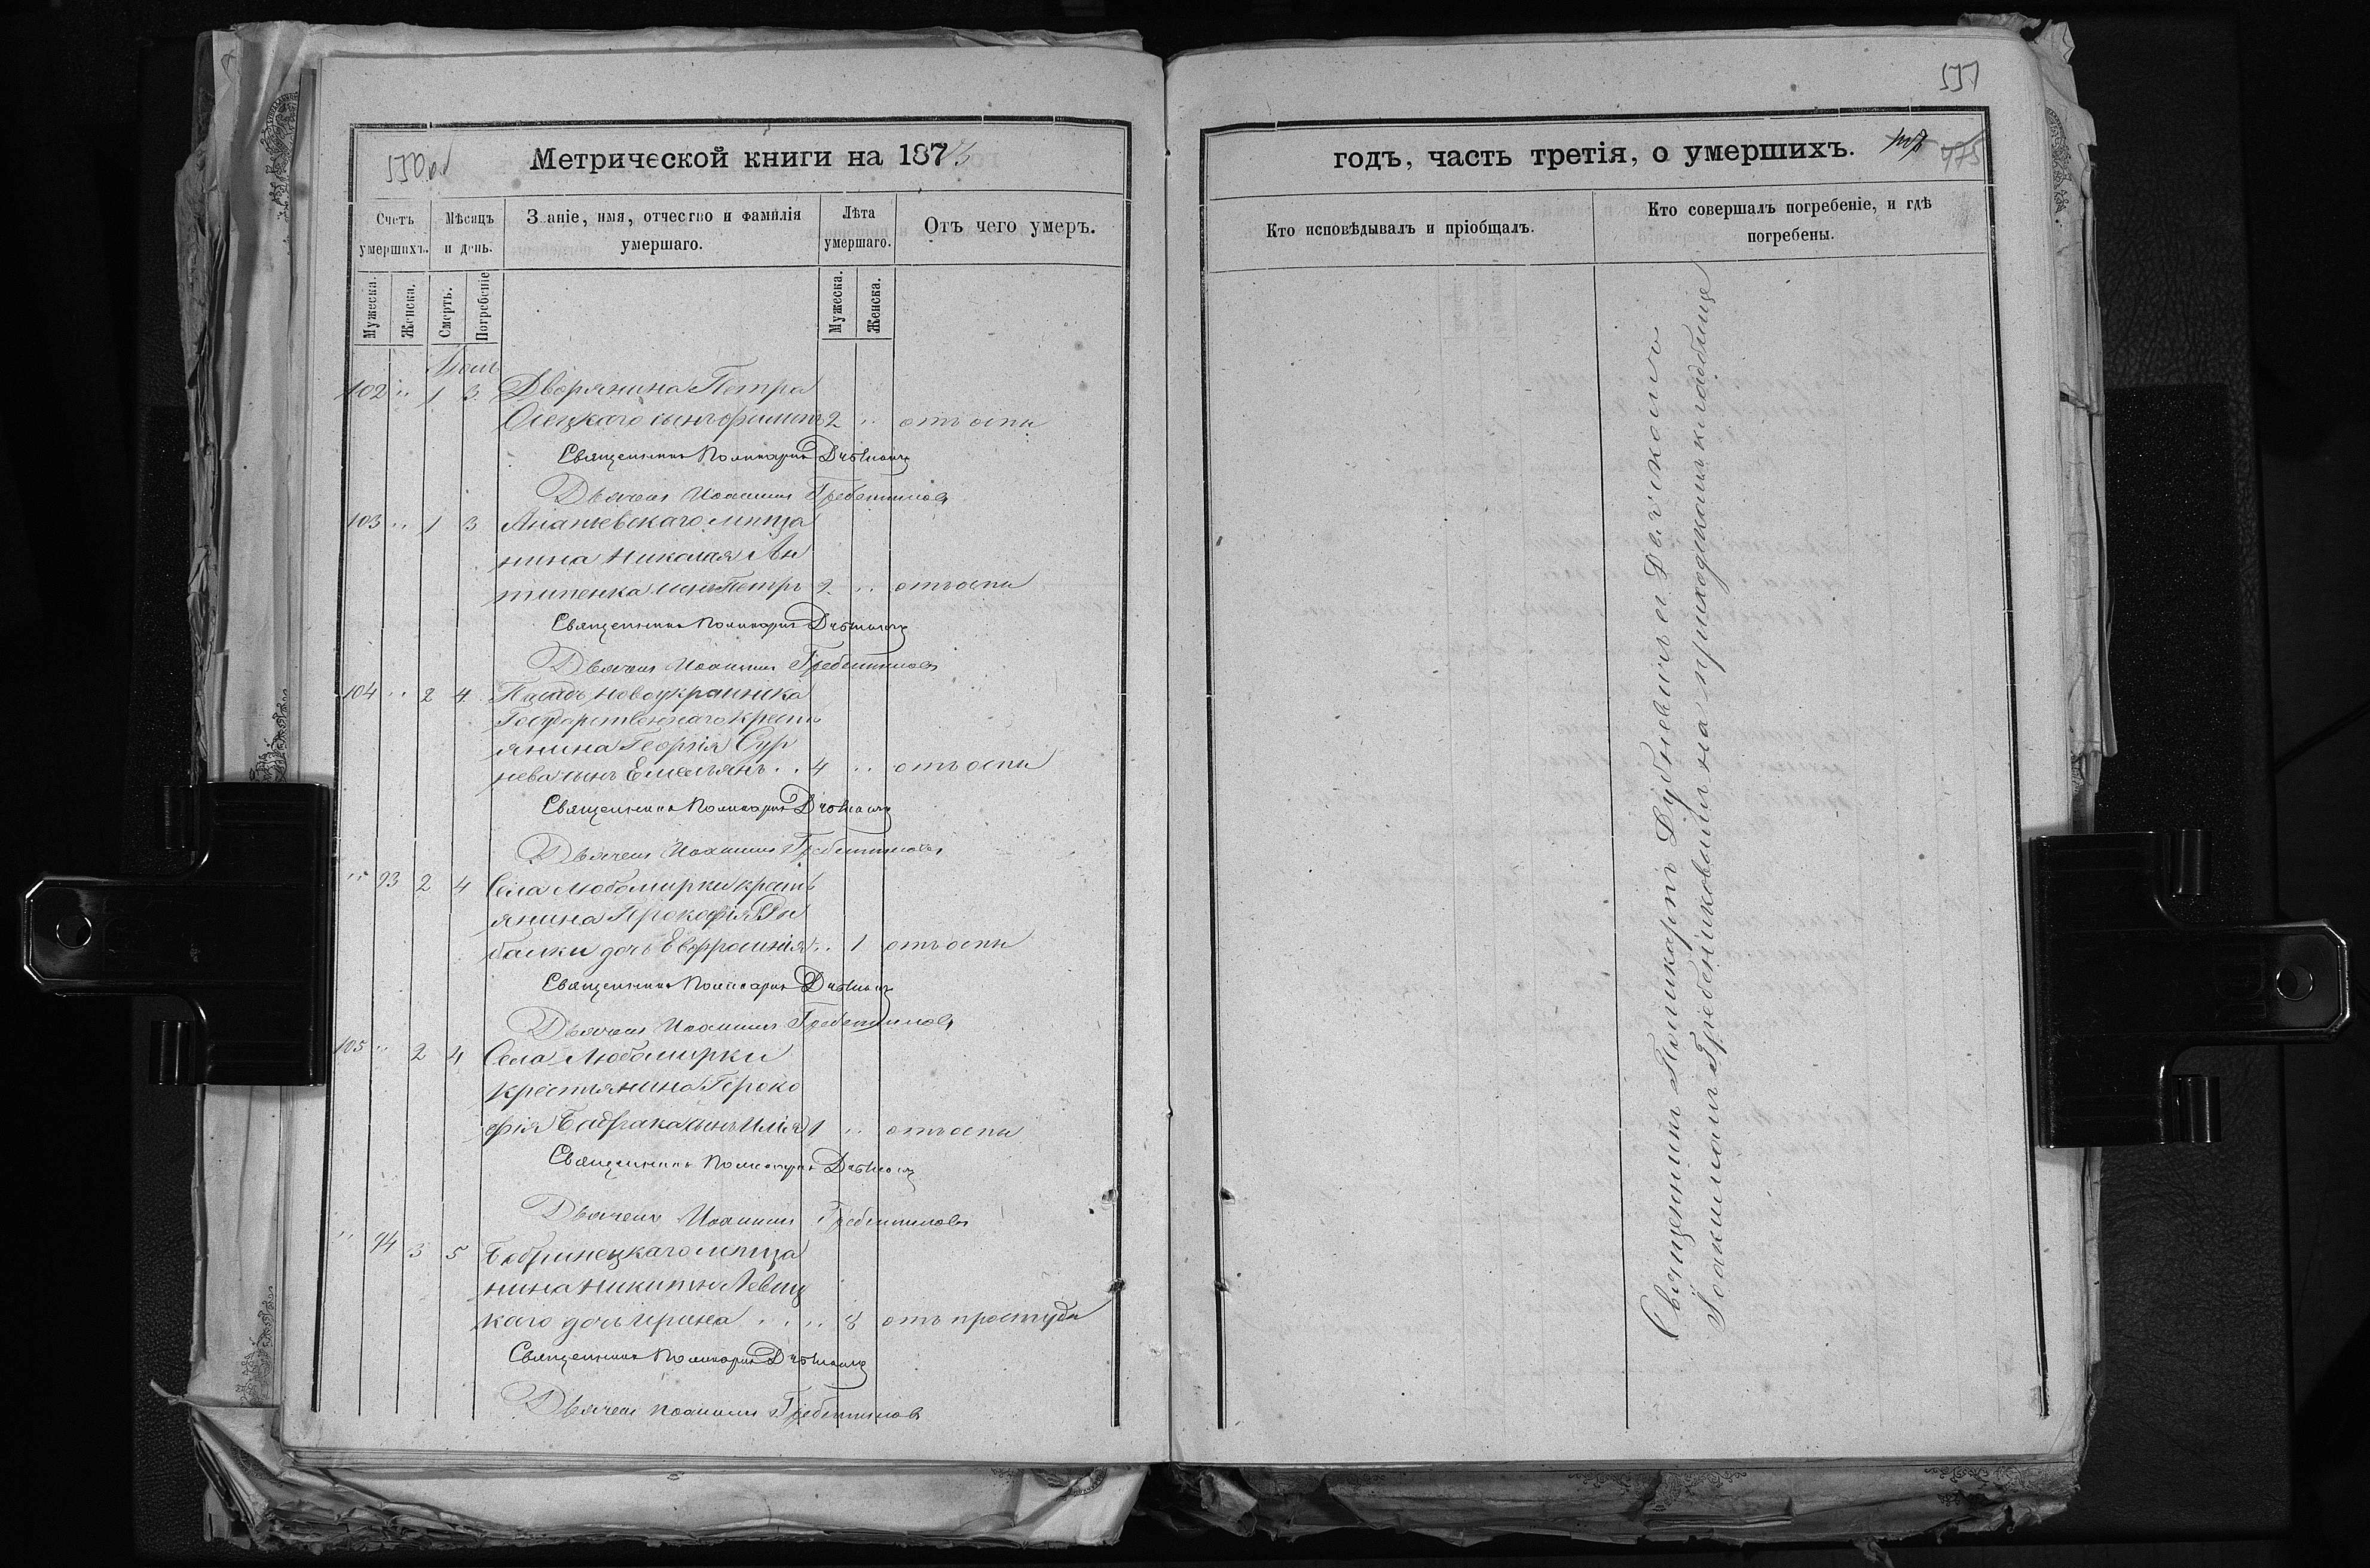 550 об
Метрической книги на 1873
Счетъ умершихъ.
Мѣсяцъ и день.
Званіе, имя, отчество и фамилія умершаго.
Лѣта умершаго.
Отъ чего умеръ.
Мужеска.
Женска.
Смерть.
Погребеніе
Мужеска.
Женска.
102 " 1 3 Дворянина Петра
сынъ 2 " отъ оспы
Священникъ Поликарпъ
Дьячекъ Иоакимъ Гребенниковъ
103 " 1 3 Ананьевскаго мѣща
нина Николая Ан
типенка сынъ Петръ 2 " отъ оспы
Священникъ Поликарпъ
Дьячекъ Иоакимъ Гребенниковъ
104 " 2 4 Посада Новоукраинка
Государственнаго крестъ
янина Георгія Сур
нева сынъ Емельянъ 4 " отъ оспы
Священникъ Поликарпъ
Дьячекъ Иоакимъ Гребенниковъ
" 93 2 4 Села Любомирки крестъ
янина Прокофія Ры
балки дочь Евфросинія " 1 отъ оспы
Священникъ Поликарпъ
Дьячекъ Иоакимъ Гребенниковъ
105 " 2 4 Села Любомирки
крестьянина Проко
фія сынъ Илія 1 " отъ оспы
Священникъ Поликарпъ
Дьячекъ Иоакимъ Гребенниковъ
" 94 3 5 Бобринецкаго мѣща
нина Никиты Левиц
каго дочь Ирина " 8 отъ простуды
Священникъ Поликарпъ
Дьячекъ Иоакимъ Гребенниковъ
551
годъ, часть третія, о умершихъ.
475
Кто исповѣдывалъ и пріобщалъ.
Кто совершалъ погребеніе, и гдѣ погребены.
Священникъ Поликарпъ съ Дьячкомъ
Іоакимомъ Гребенниковымъ на приходскомъ кладбищѣ